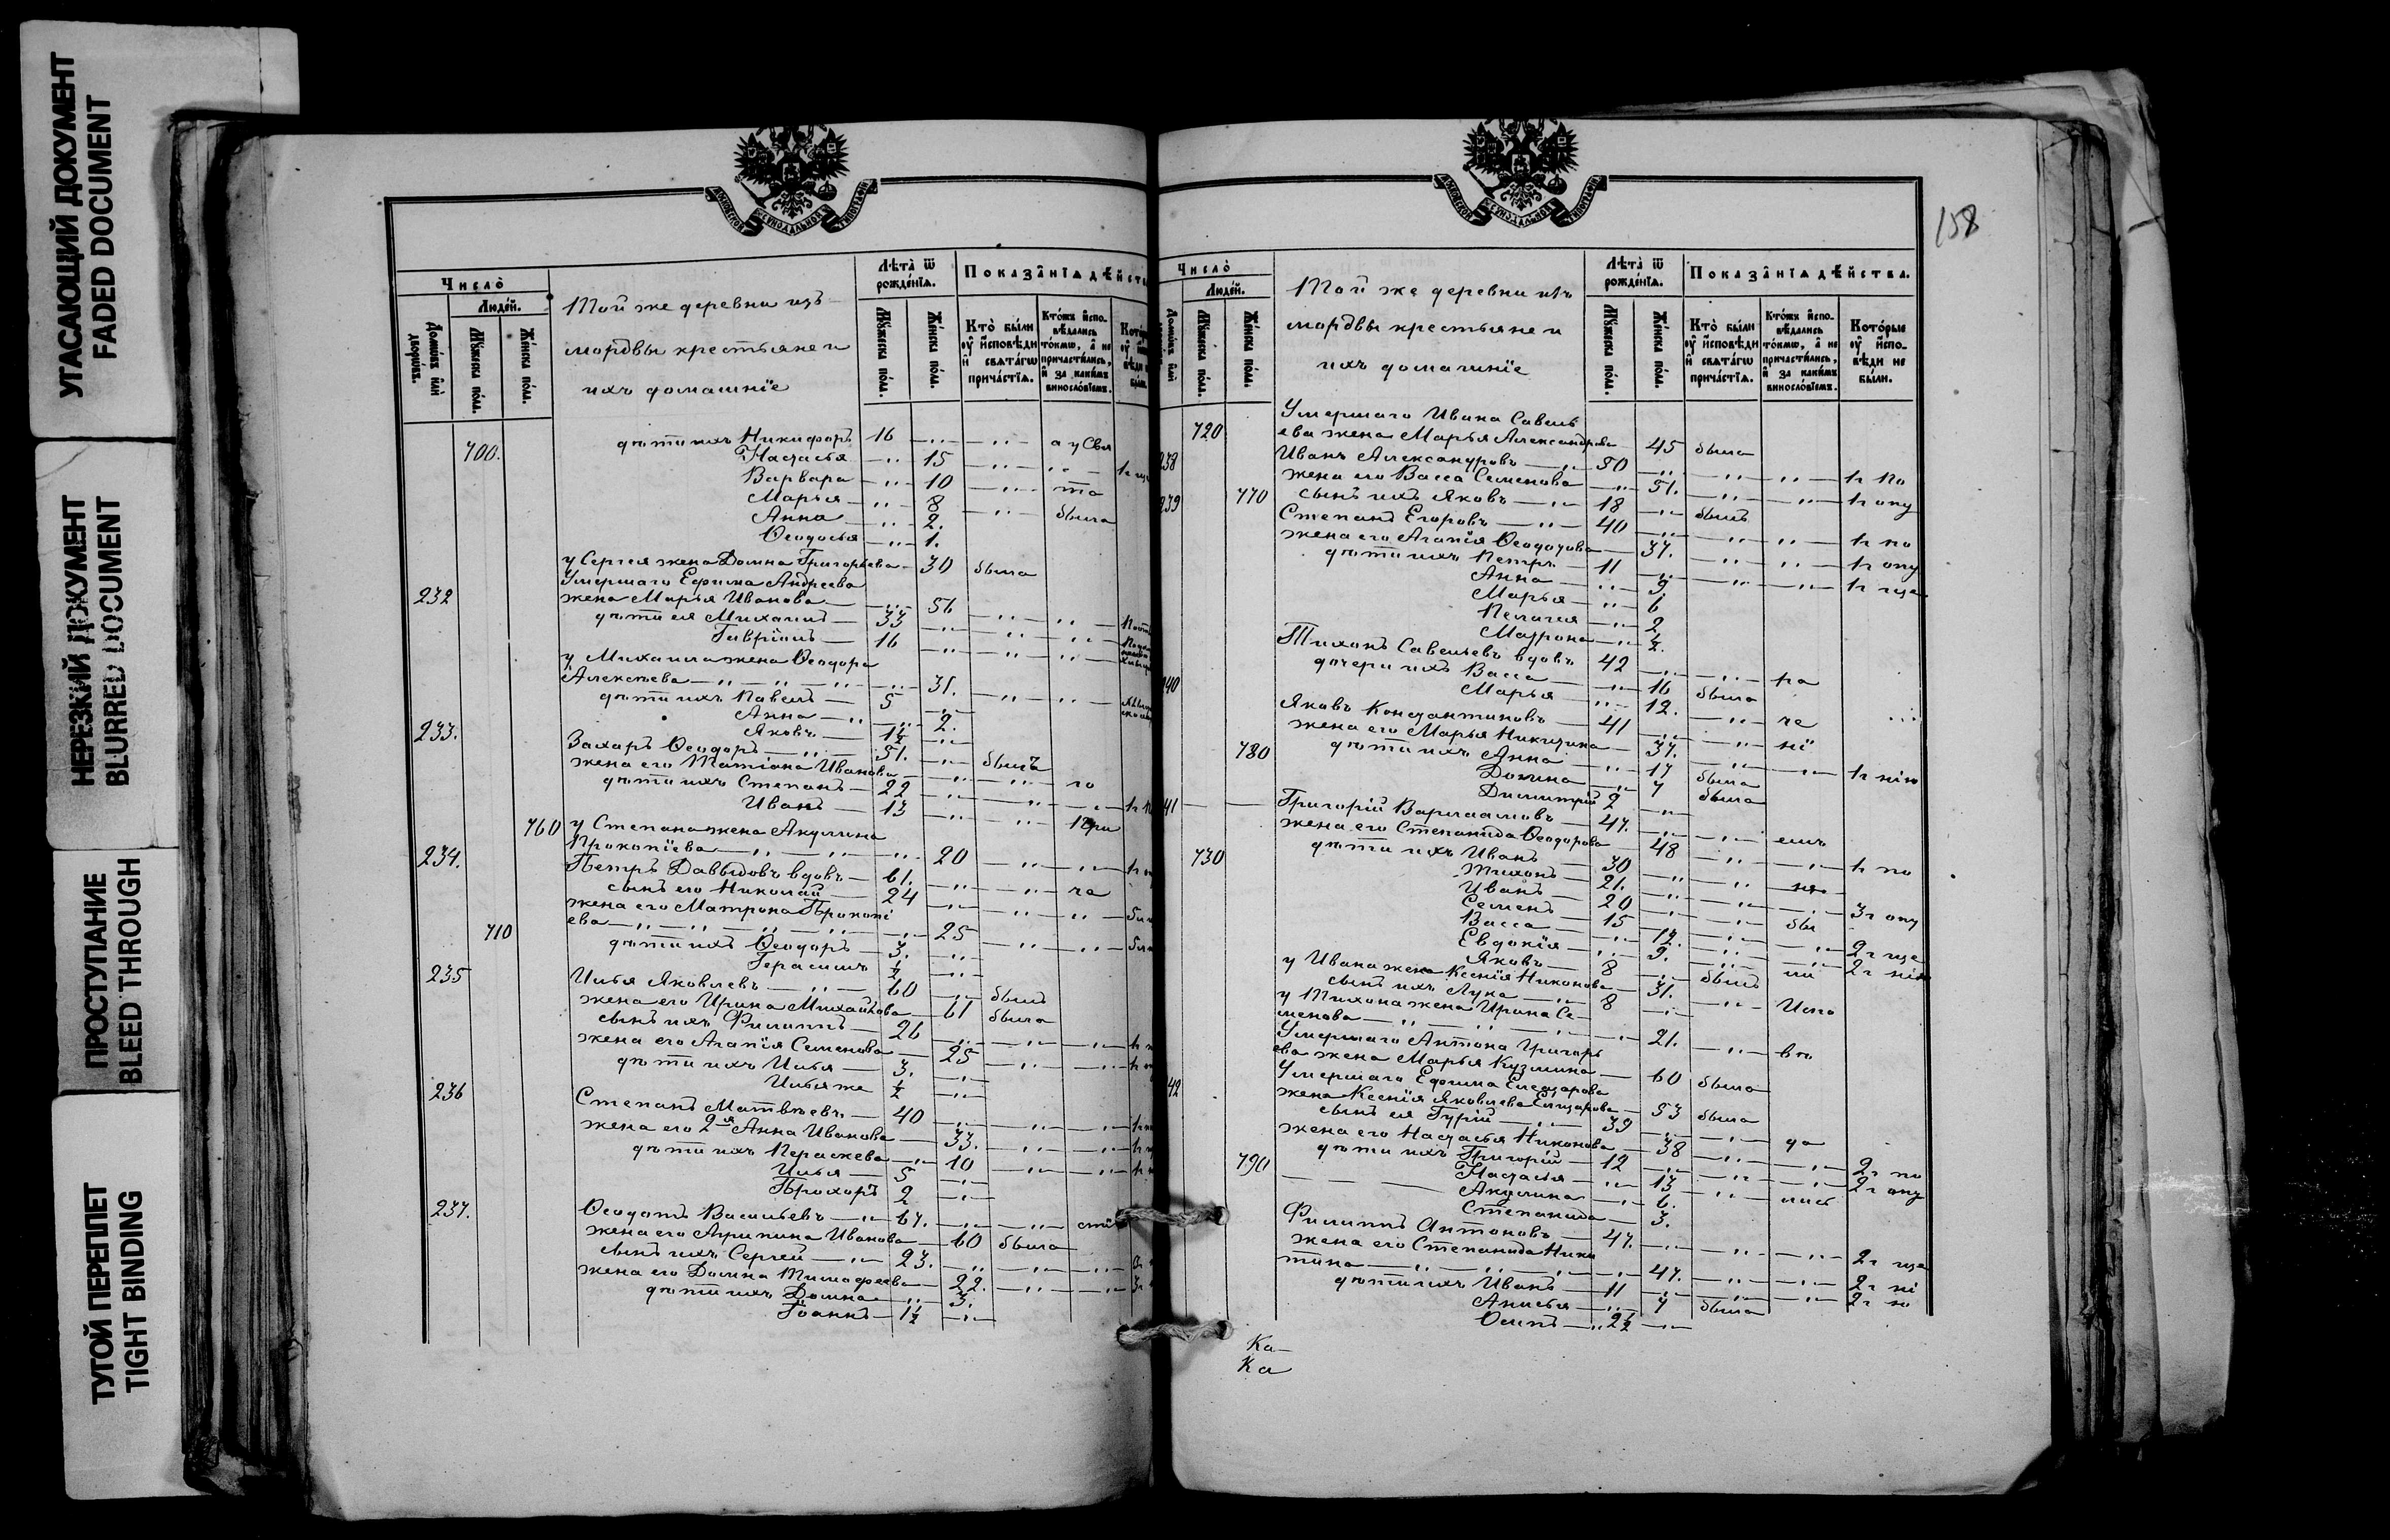 УГАСАЮЩИЙ ДОКУМЕНТ
FADED DOCUMENT
НЕРЕЗКИЙ ДОКУМЕНТ
BLURRED DOCUMENT
ПРОСТУПАНИЕ
BLEED THROUGH
ТУГОЙ ПЕРЕПЛЕТ
TIGHT BINDING
МОСКОВСКОЙ СѴНОДАЛЬНОЙ ТИПОГРАФІИ
Число̀
Люде́й.
Домѡ́въ и҆лѝ дворѡ́въ.
Мꙋ́жеска по́ла.
Же́нска по́ла.
Той же деревни изъ
мордвы крестьяне и
ихъ домашніе
Лѣ́та ѿ рожде́нїѧ.
Мꙋ́жеска по́ла.
Же́нска по́ла.
Показа̑нїѧ дѣ́йства
Кто̀ бы́ли ᲂу҆ и҆́сповѣди и҆ свѧта́гѡ прича́стїѧ.
Кто́жъ и҆сповѣ́дались то́кмѡ, а҆ не причасти́лись, и҆ за каки́мъ винословїемъ.
дѣти ихъ Никифоръ 16 а у Свя
700. Настасья 15
Варвара 10 та
Марья 8
Анна 2. была
Ѳеодосья 1.
у Сергея жена Домна Григорьева 30 была
Умершаго Ефима Андреева
232 жена Марья Иванова 56
дѣти ея Михаилъ 33
Гавріилъ 16
у Михаила жена Ѳеодора
Алексѣева 31.
дѣти ихъ Павелъ 5
Анна 2.
Яковъ 1½
233. Захаръ Ѳеодоръ 51. былъ
жена его Татіана Иванова го
дѣти ихъ Степанъ 22
Иванъ 13
760 у Степана жена Акулина
Прокопіева 20
234. Петръ Давыдовъ вдовъ 61. ча
сынъ его Николай 24
жена его Матрона Прокопі
710 ева 25
дѣти ихъ Ѳеодоръ 3.
Герасимъ ½
235 Илья Яковлевъ 60 былъ
жена его Ирина Михайлова 61 была
сынъ ихъ Филиппъ 26
жена его Агапія Семенова 25
дѣти ихъ Илья 3.
Илья же ½
236 Степанъ Матвѣевъ 40
жена его 2я Анна Иванова 33.
дѣти ихъ Пераскева 10
Илья 5
Прохоръ 2
237. Ѳеодотъ Васильевъ 67.
жена его Агрипина Иванова 60 была
сынъ ихъ Сергей 23.
жена его Домна Тимофеева 22.
дѣти ихъ Домна 3.
Іоаннъ 1½
158
МОСКОВСКОЙ СѴНОДАЛЬНОЙ ТИПОГРАФІИ
Число̀
Люде́й.
Мꙋ́жеска по́ла.
Же́нска по́ла.
Той же деревни изъ
мордвы крестьяне и
ихъ домашніе
Лѣ́та ѿ рожде́нїѧ.
Мꙋ́жеска по́ла.
Же́нска по́ла.
Показа̑нїѧ дѣ́йства.
Кто̀ бы́ли ᲂу҆ и҆́сповѣди и҆ свѧта́гѡ прича́стїѧ.
Кто́жъ и҆сповѣ́дались то́кмѡ, а҆ не причасти́лись, и҆ за каки́мъ винословїемъ.
Кото́рые ᲂу҆ и҆́сповѣди не бы́ли.
Умершаго Ивана Савель
720 ева жена Марья Александрова 45 была
238 Иванъ Александровъ 50 1г по
жена его Васса Семенова 51. 1г опу
239 770 сынъ ихъ Яковъ 18 былъ
Степанъ Егоровъ 40 1г по
жена его Агапія Ѳеодотова 37. 1г опу
дѣти ихъ Петръ 11 1г ще
Анна 9
Марья 6
Пелагея 2
Матрона ½
Тихонъ Савельевъ вдовъ 42 на
240 дочери ихъ Васса 16 была
Марья 12. че
Яковъ Константиновъ 41 ні
жена его Марья Никитина 37. 1г нію
780 дѣти ихъ Анна 17 была
Домна 7 была
Димитрій 2
41 Григорій Варлаамовъ 47. емъ
жена его Степанида Ѳеодорова 48 1г по
730 дѣти ихъ Иванъ 30
Тихонъ 21. 3г опу
Иванъ 20 бы
Семенъ 15 2г ще
Васса 12. 2г нію
Евдокія 9.
Яковъ 8 былъ
у Ивана жена Ксенія Никонова 31. Испо
сынъ ихъ Лука 8
у Тихона жена Ирина Се-
менова 21. вѣ
Умершаго Антона Григорь
ева жена Марья Кузмина 60 была
42 Умершаго Ефима Елеазарова
жена Ксенія Яковлева Елизарова 53 была
сынъ ея Гурій 39 да
жена его Настасья Никонова 38 2г по
790 дѣти ихъ Григорій 12 2г опу
Настасья 13 лись
Акулина 6.
Степанида 3.
Филиппъ Антоновъ 47. 2г ще
жена его Степанида Ники
тина 47. 2г ні
дѣти ихъ Иванъ 11 2г ю
Анисья 7 была
Осипъ 2½
Ка-
Ка